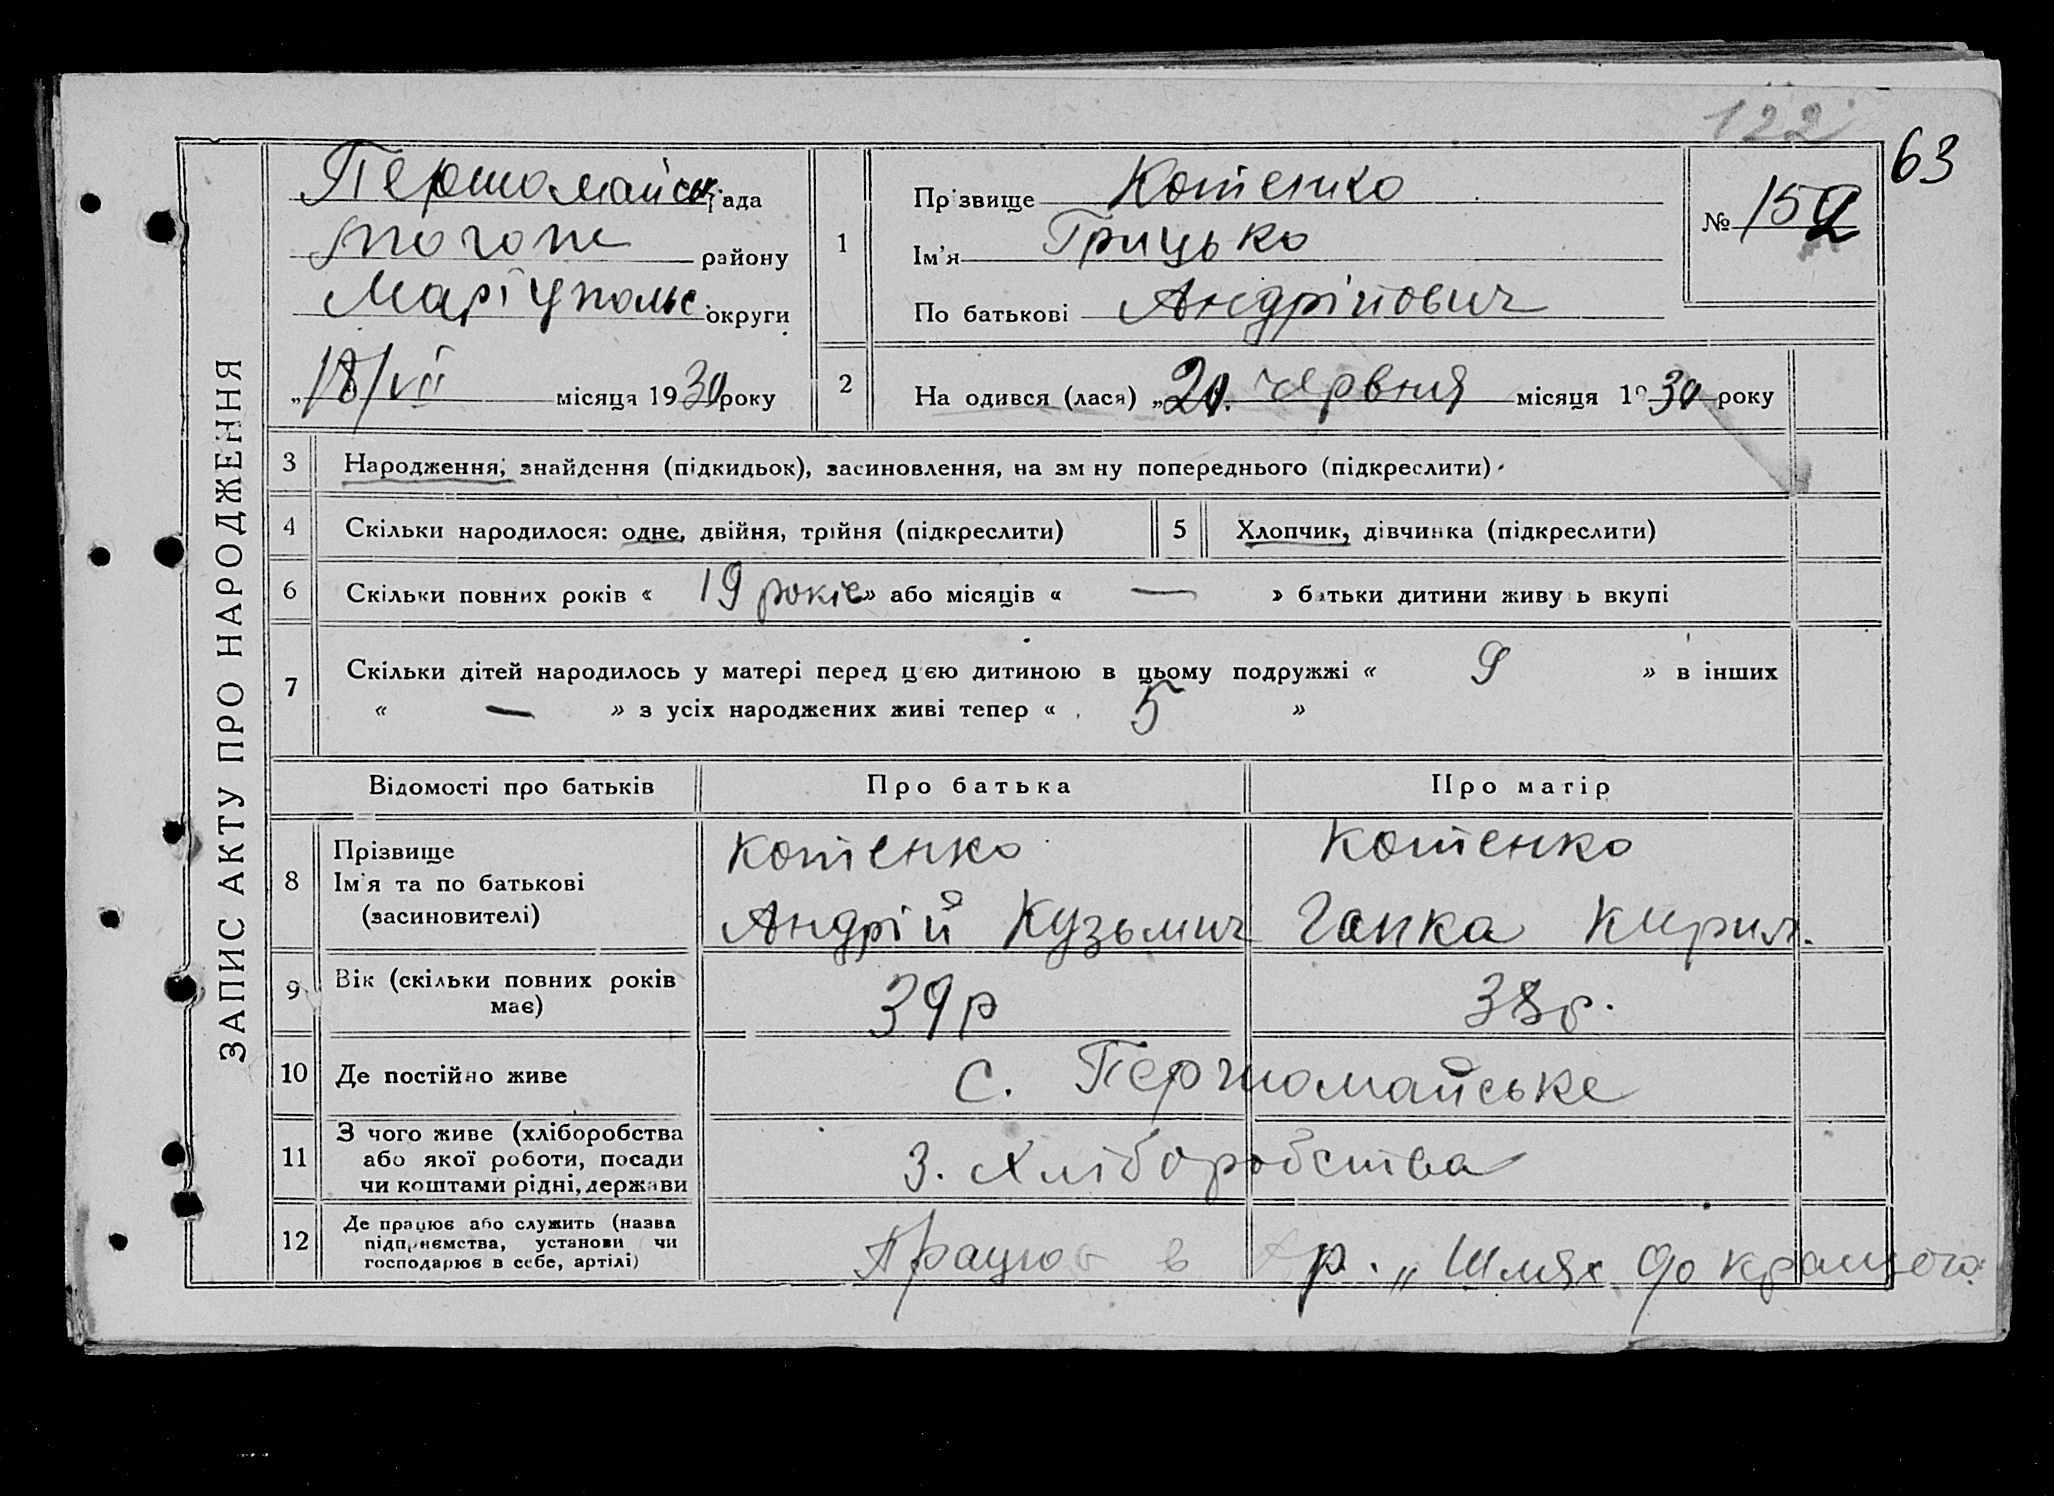 122
63
ЗАПИС АКТУ ПРО НАРОДЖЕННЯ
Першомайськ рада
того ж району
Маріупольс. округи
„18/VII місяця 1930 року
1
Прізвище Котенко
Ім'я Грицько
По батькові Андрійович
№ 152
2
На одився (лася) „20. червня місяця 1930 року
3 Народження, знайдення (підкидьок), засиновлення, на зм ну попереднього (підкреслити)
4 Скільки народилося: одне, двійня, трійня (підкреслити) 5 Хлопчик, дівчинка (підкреслити)
6 Скільки повних років « 19 років » або місяців « — » батьки дитини живу ь вкупі
7 Скільки дітей народилось у матері перед цєю дитиною в цьому подружжі « 9 » в інших
« — » з усіх народжених живі тепер « 5 »
Відомості про батьків Про батька Про матір
8 Прізвище
Ім'я та по батькові
(засиновителі)
Котенко
Андрій Кузьмич
Котенко
Гапка Кирил.
9 Вік (скільки повних років
має)
39 р
38 р.
10 Де постійно живе с. Першомайське
11 З чого живе (хліборобства
або якої роботи, посади
чи коштами рідні, держави
З. Хліборобства
12 Де працює або служить (назва
підприємства, установи чи
господарює в себе, артілі)
Працює в Ар. „Шлях до кращого